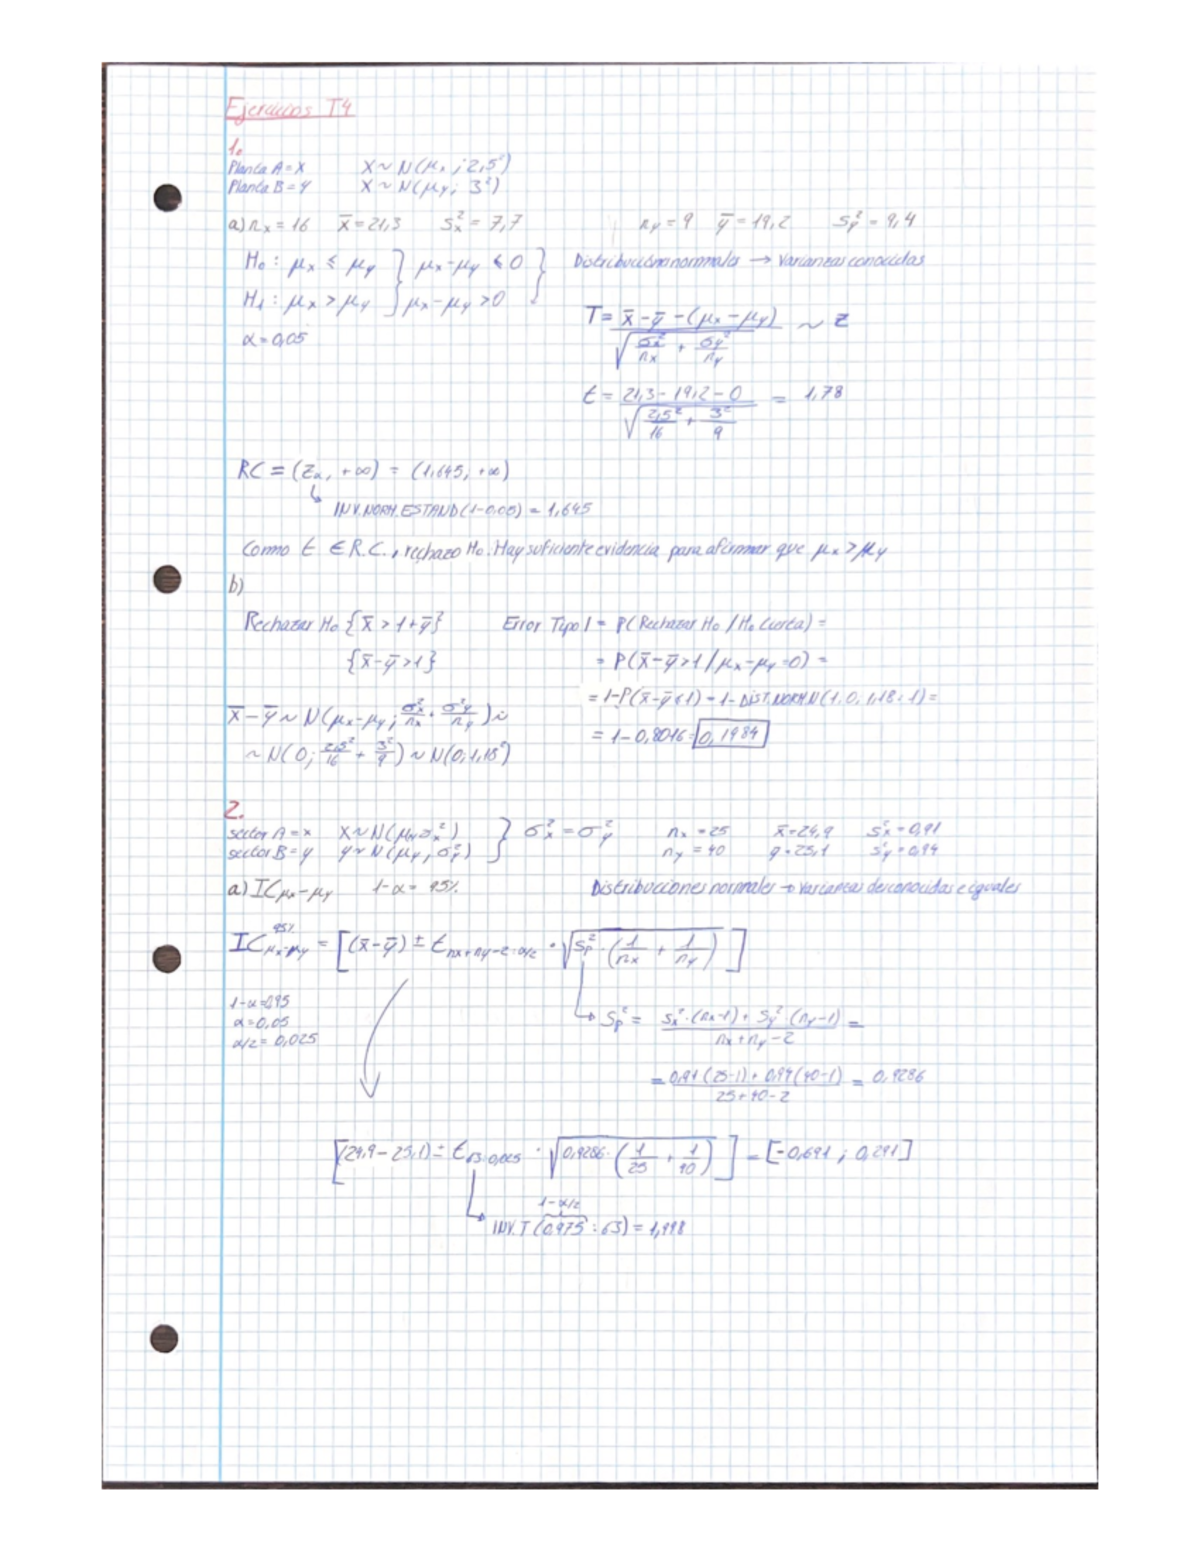 Ejercicios T4
1.
Planta A = X X ~ N(μx ; 2,5²)
Planta B = Y X ~ N(μy ; 3²)
a) nx = 16 x̄ = 21,3 Sx² = 7,7 ny = 9 ȳ = 19,2 Sy² = 9,4
H0 : μx ≤ μy } μx - μy ≤ 0 } Distribuciones normales → Varianzas conocidas
H1 : μx > μy } μx - μy > 0
α = 0,05
T = x̄ - ȳ - (μx - μy) / √(σx²/nx + σy²/ny) ~ Z
t = 21,3 - 19,2 - 0 / √(2,5²/16 + 3²/9) = 1,78
RC = (Zα, +∞) = (1,645, +∞)
↳ INV.NORM.ESTAND(1-0,05) = 1,645
Como t ∈ R.C., rechazo H0. Hay suficiente evidencia para afirmar que μx > μy
b)
Rechazar H0 {x̄ > 1 + ȳ} Error Tipo I = P(Rechazar H0 / H0 Cierta) =
{x̄ - ȳ > 1} = P(x̄ - ȳ > 1 / μx - μy = 0) =
= 1 - P(x̄ - ȳ ≤ 1) = 1 - DIST.NORM.N(1; 0; 1,18; 1) =
x̄ - ȳ ~ N(μx - μy ; σx²/nx + σy²/ny) ~
= 1 - 0,8016 = 0,1984
~ N(0; 2,5²/16 + 3²/9) ~ N(0; 1,18²)
2.
sector A = x X ~ N(μx, σx²) } σx² = σy² nx = 25 x̄ = 24,9 Sx² = 0,91
sector B = y Y ~ N(μy, σy²) ny = 40 ȳ = 25,1 Sy² = 0,94
a) IC μx - μy 1 - α = 95% Distribuciones normales → Varianzas desconocidas e iguales
IC 95% μx - μy = [(x̄ - ȳ) ± t nx + ny - 2; α/2 · √(Sp² · (1/nx + 1/ny))]
1 - α = 0,95
α = 0,05
α/2 = 0,025
↳ Sp² = Sx² · (nx - 1) + Sy² · (ny - 1) / nx + ny - 2 =
= 0,91 (25-1) + 0,94 (40-1) / 25 + 40 - 2 = 0,9286
[(24,9 - 25,1) ± t 63; 0,025 · √(0,9286 · (1/25 + 1/40))] = [-0,691 ; 0,291]
1 - α/2
↳ INV.T (0,975 ; 63) = 1,998